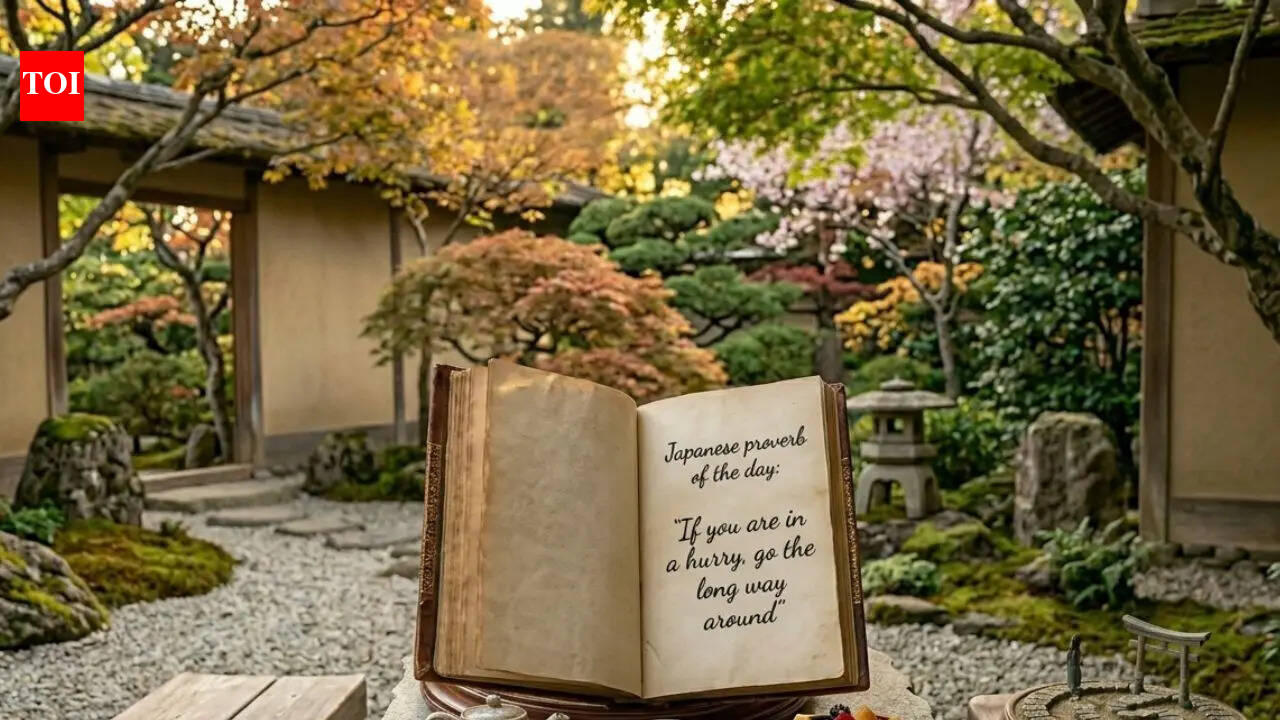 TOI
Japanese proverb
of the day:
"If you are in
a hurry, go the
long way
around"